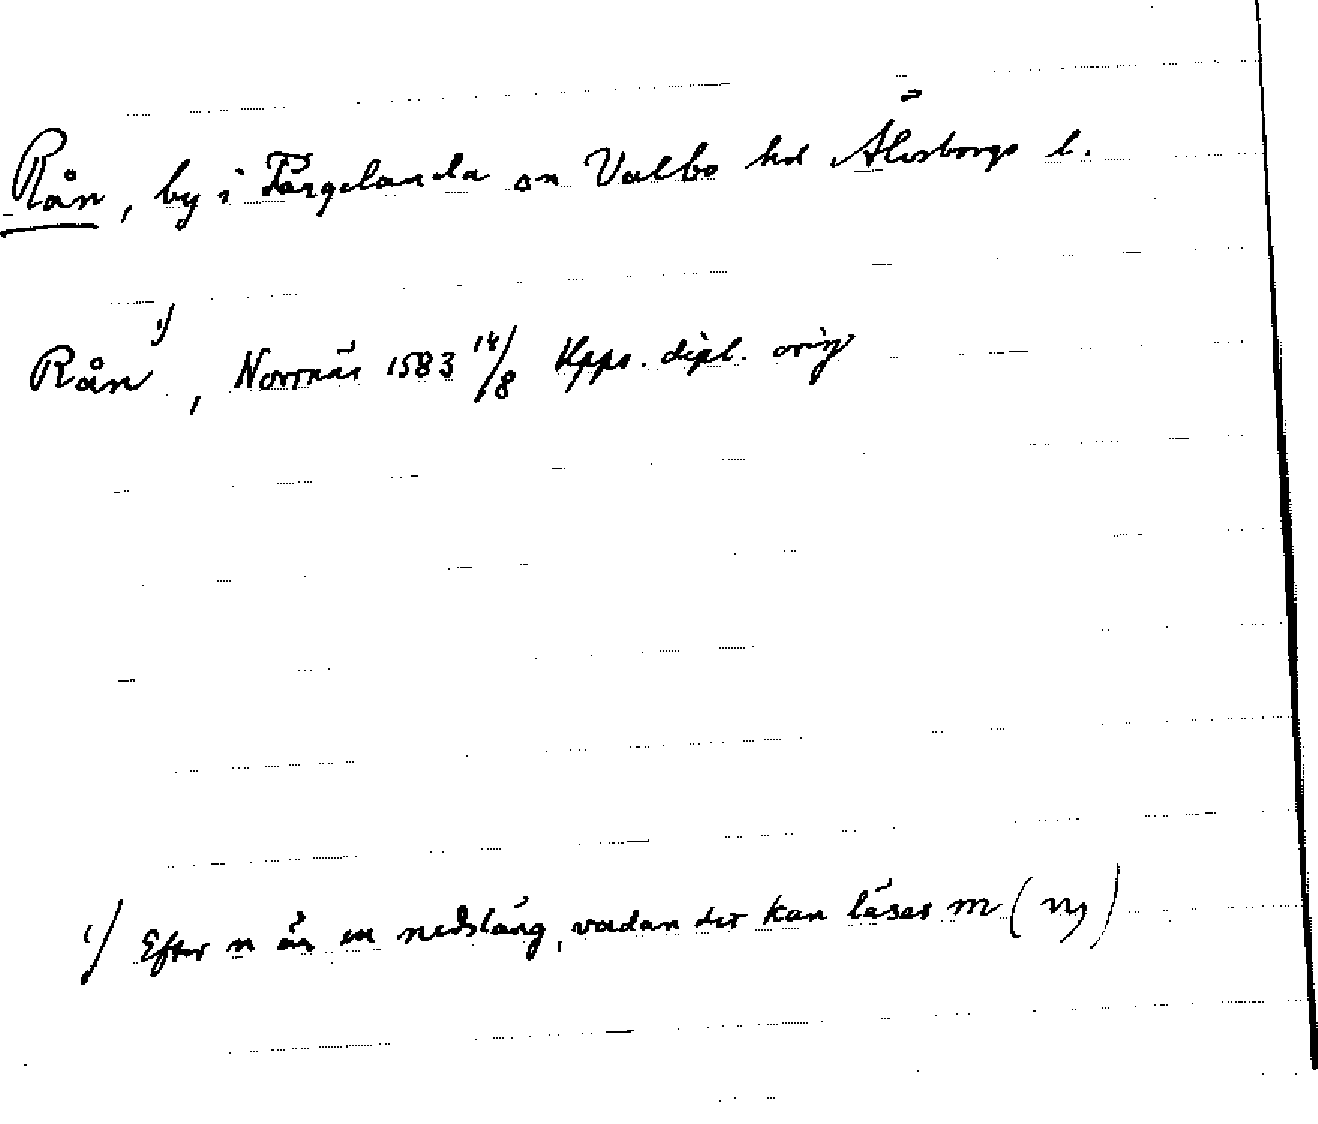 Rån, by i Färgelanda sn Valbo hd Älvsborgs l.
Rån 1), Norrnäs 1583 14/8 Kpps. dipl. orig
1) Efter n än en nedsläng, vadan det kan läsas m (nj)